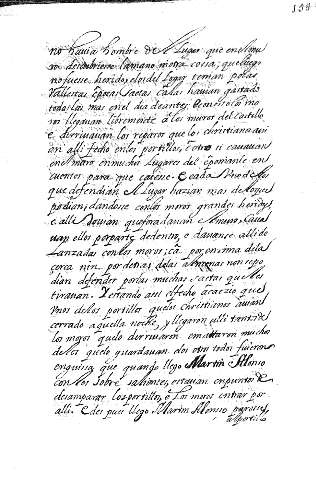 138
no havia hombre de el lugar que en el mu
ro descubriese la mano ni otra cosa, que luego
no fuese herido, e los del Lugar tenian pocas
Vallestas, e pocas Saetas ca las havian gastado
todo lo mas en el dia de antes; e con esto los mo
ros llegavan libremente a los muros del castillo
e derrivavan los reparos que los christianos avi
an alli fecho en los portillos, e otro si cavavan
en el muro en muchos lugares del e ponianle en
cuentos para que caiese. E cada uno de los
que defendian el lugar hazian mas de lo que
podian; dandose con los moros grandes heridas
e alli donde quebrantavan el muro, cava
van ellos por parte de dentro, e davanse alli de
Lanzadas con los moros; ca por encima de la
cerca nin por detras de las almenas non se po
dian defender por las muchas saetas que les
tiravan. Y estando asi el fecho acaezio que
unos de los portillos que los christianos avian
cerrado aquella noche, y llegaron alli tantos de
los moros que lo derrivaron e mataron muchos
de los que lo guardavan dos o tres todos fueron
en guisa que quando llego Martin Alonso
con los sobre salientes, estavan en punto de
desamparar los portillos, e los moros entrar por
alli. E despues llego Martin Alonso
al portillo